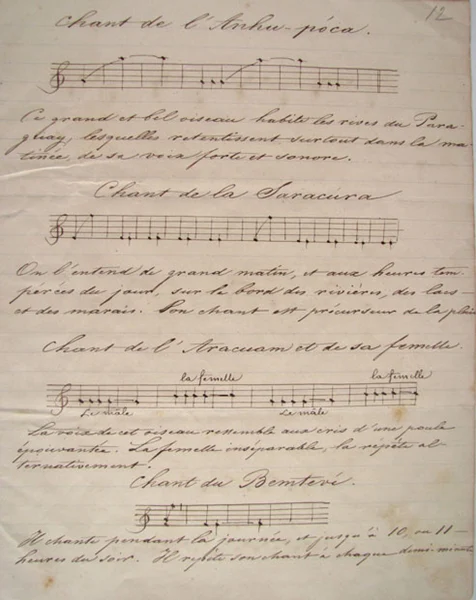 12
Chant de l'Anhu-póca.
Ce grand et bel oiseau habite les rives du Para-
guay, lesquelles retentissent surtout dans la ma-
tinée, de sa voix forte et sonore.
Chant de la Saracúra
On l'entend de grand matin, et aux heures tem-
pérées du jour, sur le bord des rivières, des lacs
et des marais. Son chant est précurseur de la pluie
Chant de l'Aracuam et de sa femelle.
la femelle
la femelle
Le mâle
Le mâle
La voix de cet oiseau ressemble aux cris d'une poule
épouvantée. La femelle inséparable, la répète al-
ternativement.
Chant du Bemtevi.
Il chante pendant la journée, et jusqu'à 10, ou 11
heures du soir. Il répète son chant à chaque demi-minute